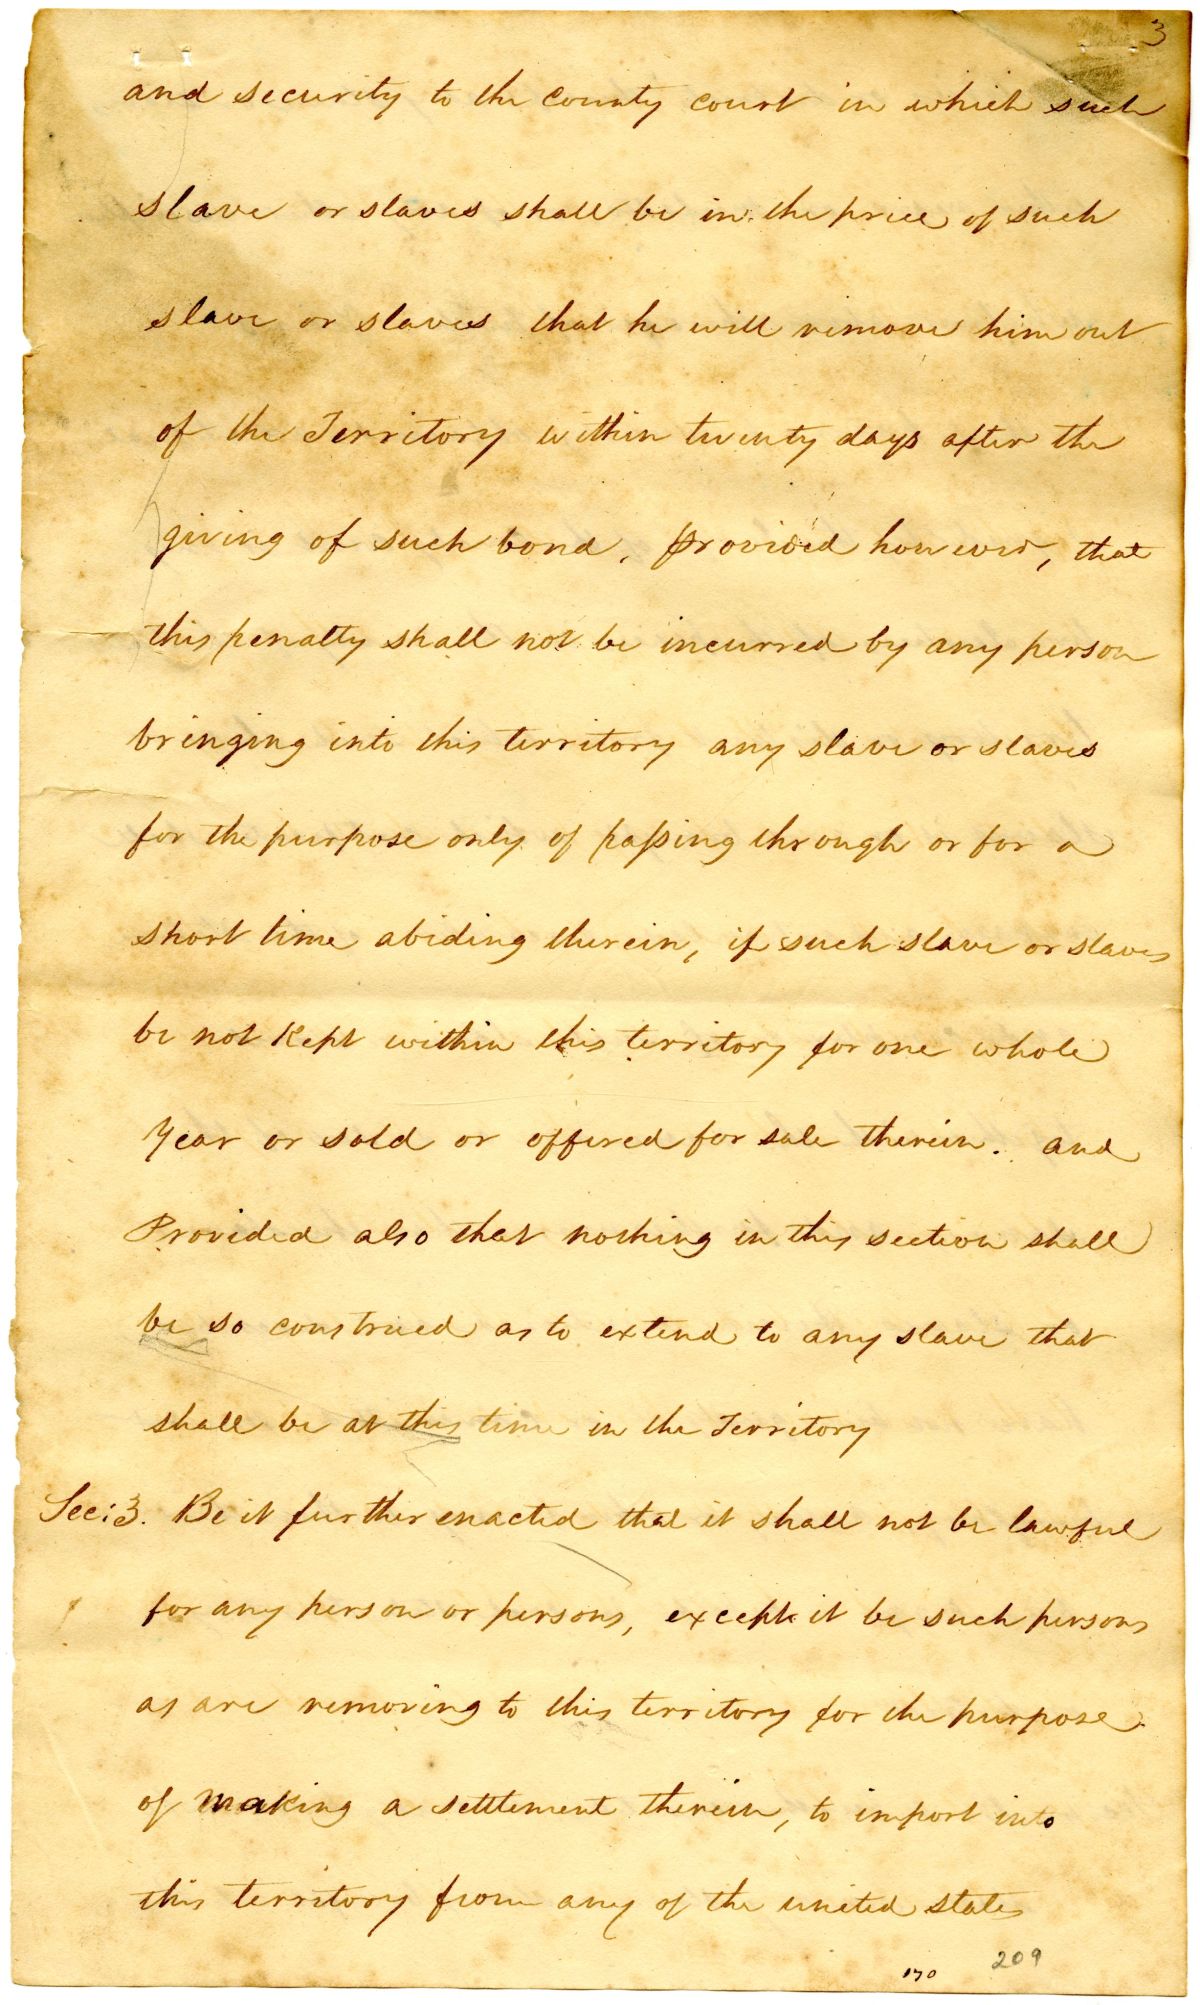 3
and security to the county court in which such
slave or slaves shall be in the price of such
slave or slaves that he will remove him out
of the Territory within twenty days after the
giving of such bond, provided however, that
this penalty shall not be incurred by any person
bringing into this territory any slave or slaves
for the purpose only of paſsing through or for a
short time abiding therein, if such slave or slaves
be not Kept within this territory for one whole
Year or sold or offered for sale therein. and
Provided also that nothing in this section shall
be so construed as to extend to any slave that
shall be at this time in the Territory
Sec: 3. Be it further enacted that it shall not be lawful
for any person or persons, except it be such persons
as are removing to this territory for the purpose
of making a settlement therein, to import into
this territory from any of the united states
170 209